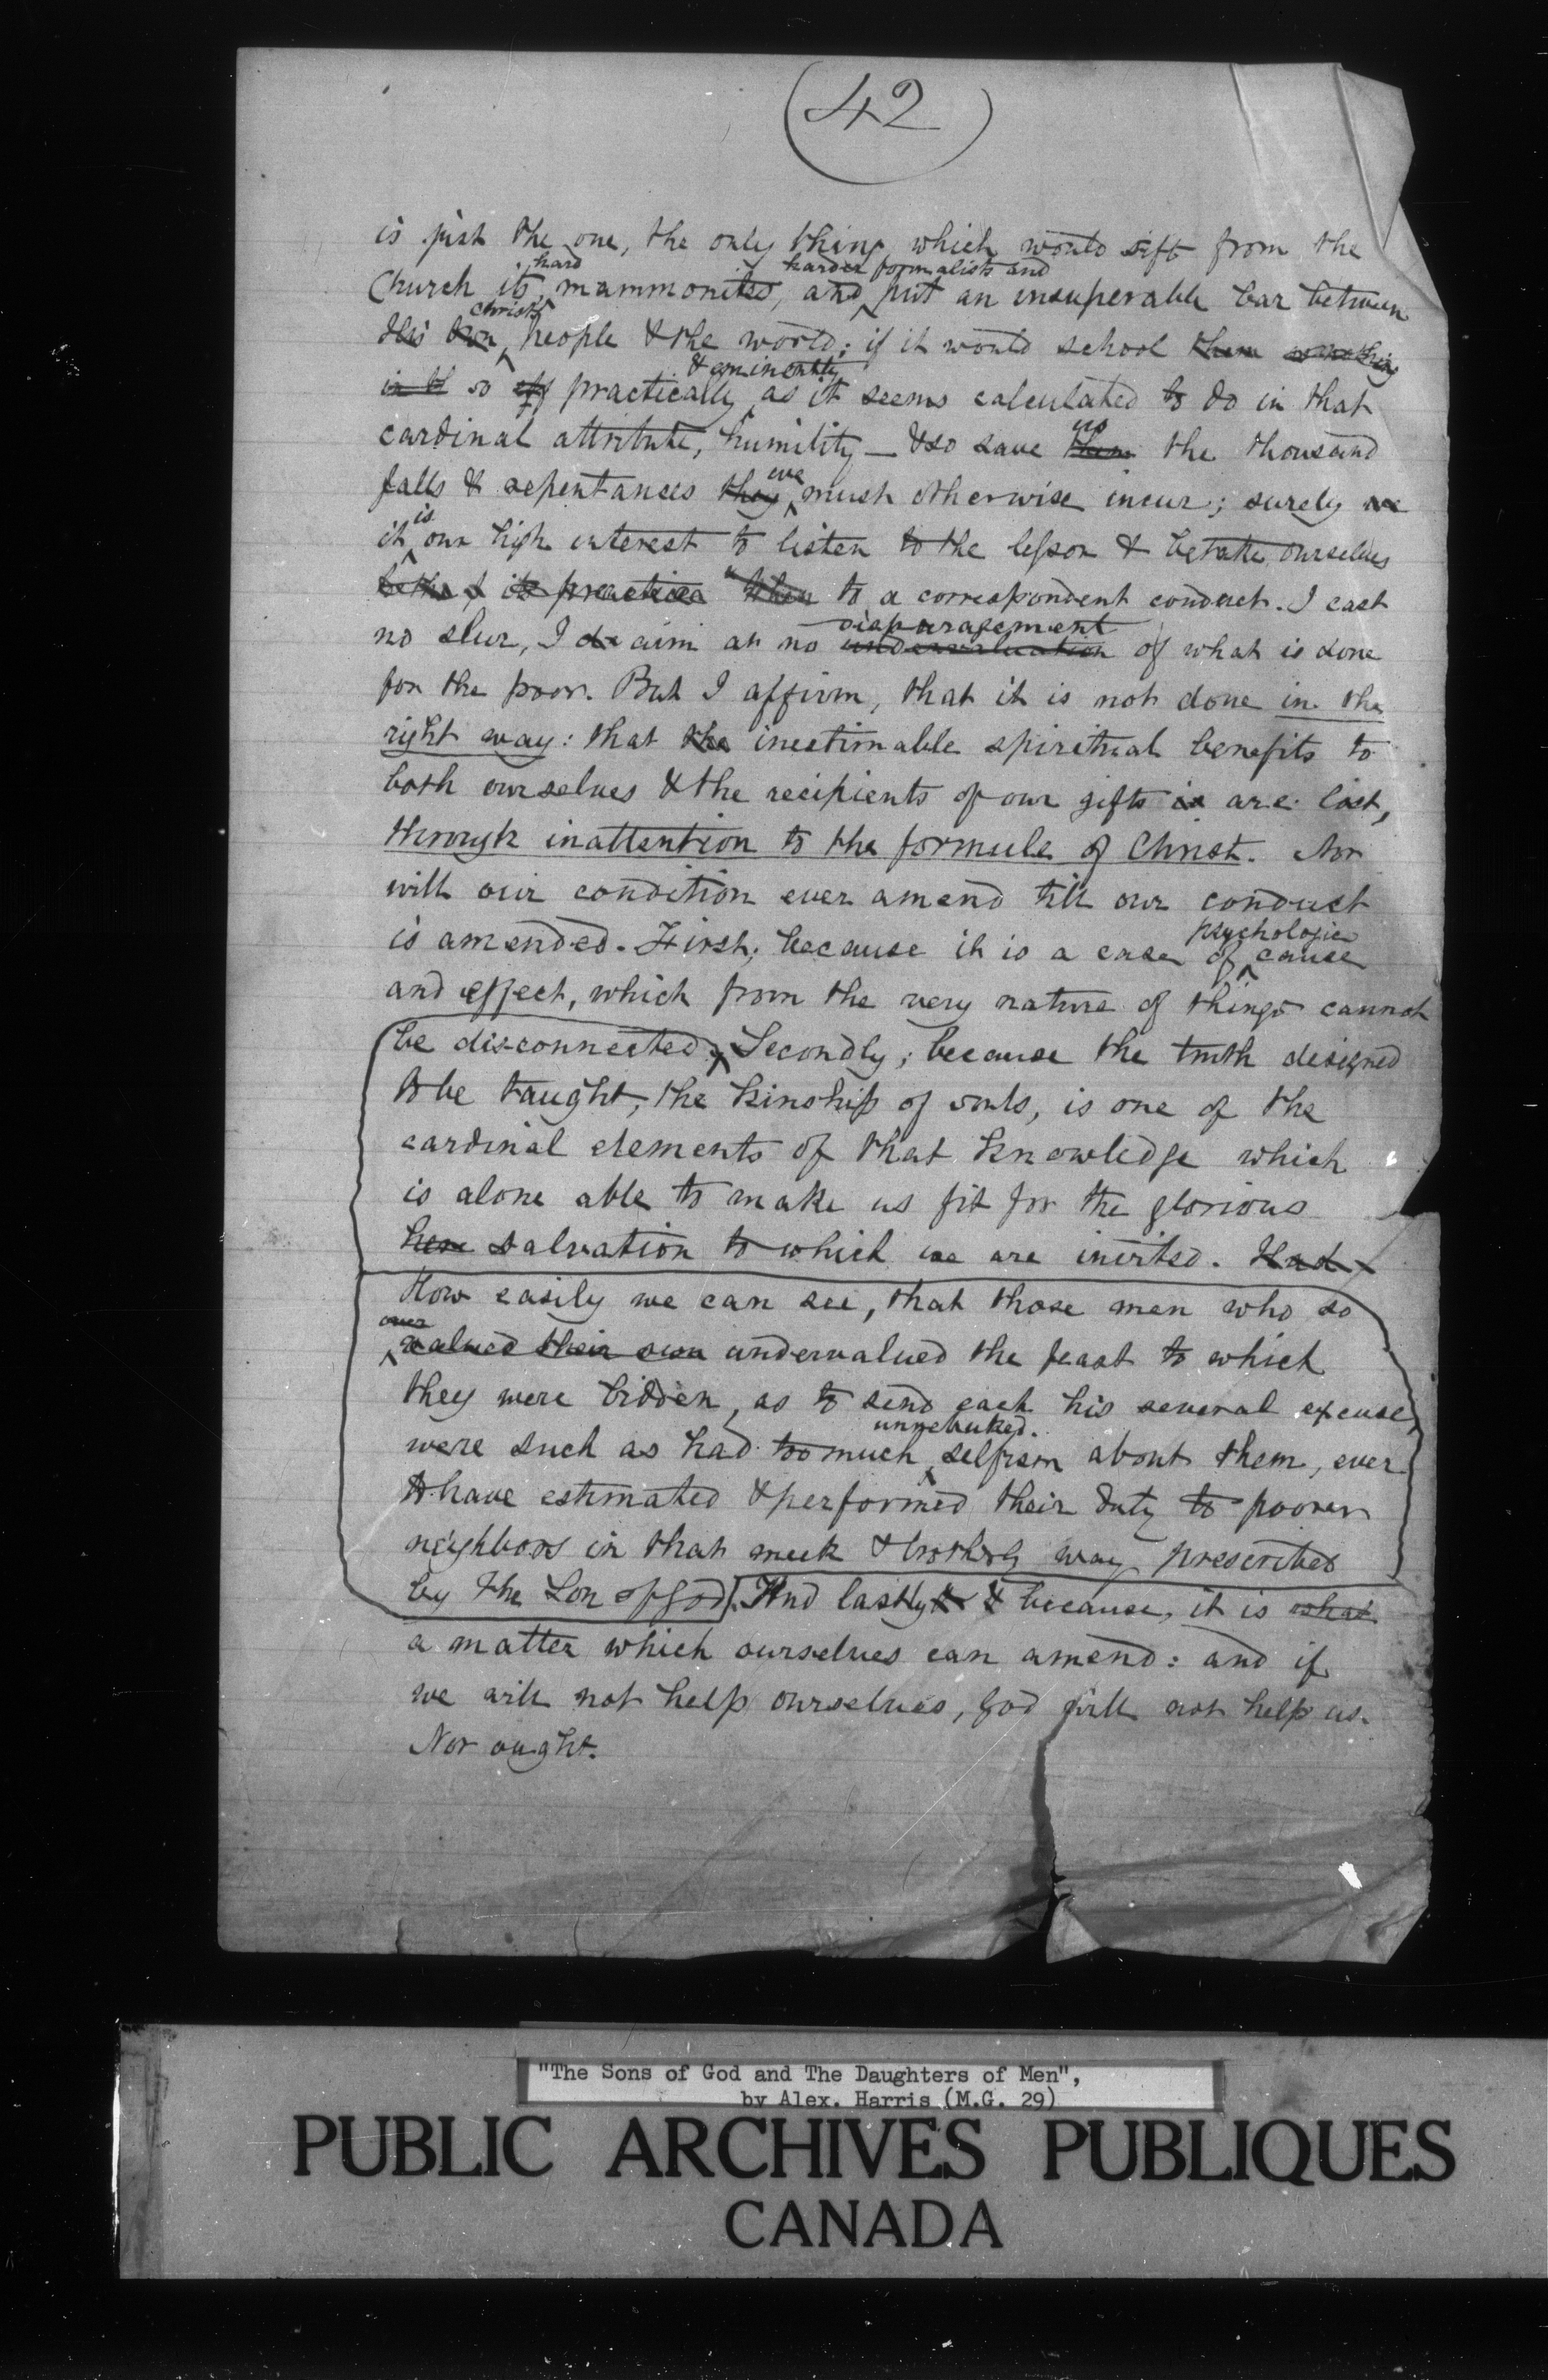 (42)
is just the one, the only thing, which would sift from the
hard harder formalists and
Church its mammonites, and put an insuperable bar between
Christ's
His own people & the world: if it would school them something
& eminently
in it so eff practically as it seems calculated to do in that
us
cardinal attribute, humility — & so save them the thousand
we
falls & repentances they must otherwise incur; surely we
is
it our high interest to listen to the lesson & betake ourselves
its practice then to a correspondent conduct. I cast
disparagement
no slur, I do aim at no undervaluation of what is done
for the poor. But I affirm, that it is not done in the
right way: that the inestimable spiritual benefits to
both ourselves & the recipients of our gifts is are lost,
through inattention to the formula of Christ. Nor
will our condition ever amend till our conduct
psychologic
is amended. First; because it is a case of cause
and effect, which from the very nature of things cannot
be disconnected; Secondly; because the truth designed
to be taught, the kinship of souls, is one of the
cardinal elements of that knowledge which
is alone able to make us fit for the glorious
here salvation to which we are invited. Had
How easily we can see, that those men who so
over
valued their own undervalued the feast to which
they were bidden, as to send each his several excuse,
unrebuked
were such as had too much selfism about them, ever
to have estimated & performed their duty to poorer
neighbors in that meek & brotherly way prescribed
by the Son of God. And lastly & because, it is what
a matter which ourselves can amend: and if
we will not help ourselves, God will not help us.
Nor ought.
"The Sons of God and The Daughters of Men",
by Alex. Harris (M.G. 29)
PUBLIC ARCHIVES PUBLIQUES
CANADA